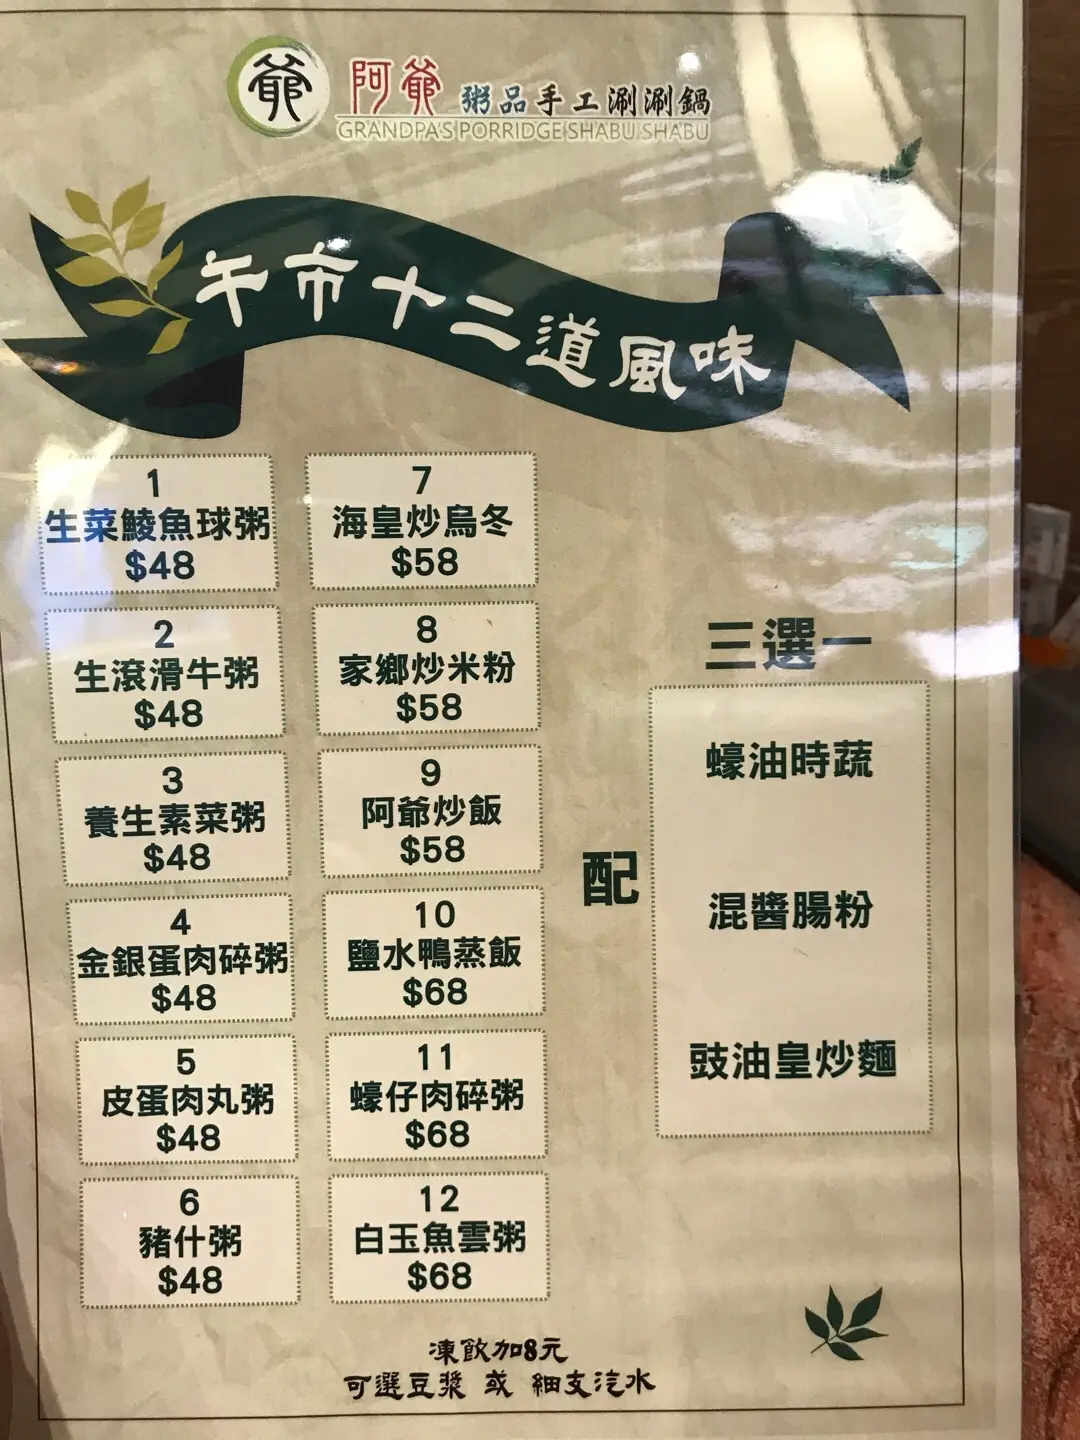 爺
阿爺 粥品手工涮涮鍋
GRANDPA'S PORRIDGE SHABU SHABU
午市十二道風味
1
生菜鯪魚球粥
$48
2
生滾滑牛粥
$48
3
養生素菜粥
$48
4
金銀蛋肉碎粥
$48
5
皮蛋肉丸粥
$48
6
豬什粥
$48
7
海皇炒烏冬
$58
8
家鄉炒米粉
$58
9
阿爺炒飯
$58
10
鹽水鴨蒸飯
$68
11
蠔仔肉碎粥
$68
12
白玉魚雲粥
$68
配
三選一
蠔油時蔬
混醬腸粉
豉油皇炒麵
凍飲加8元
可選豆漿 或 細支汽水